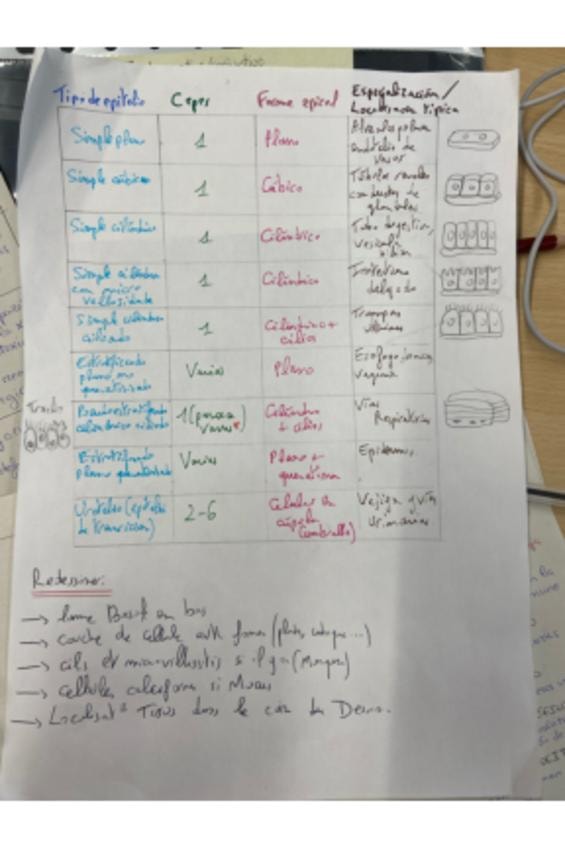 Tipo de epitelio Capas Forma apical Especialización /
Localización típica
Simple plano 1 Plano Alveolos pulmon
endotelio de
vasos
Simple cúbico 1 Cúbico Túbulos renales
conductos de
glandulas
Simple cilíndrico 1 Cilíndrico Tubo digestivo,
vesícula
biliar
Simple cilíndrico
con micro
vellosidades 1 Cilíndrico Intestino
delgado
Simple cilíndrico
ciliado 1 Cilíndrico +
cilios Trompas
uterinas
Estratificado
plano no
queratinizado Varias Plano Esofago,
vagina
Pseudoestratificado
cilíndrico ciliado 1 (parece
varias) Cilíndrico
+ cilios Vías
Respiratorias
Estratificado
plano queratinizado Varias Plano +
queratina Epidermis
Urotelio (epitelio
de transicion) 2-6 Celulas en
cúpula
(umbrella) Vejiga y vías
urinarias
Redessiner:
→ lame Basal en bas
→ couche de cellule avec forme (plate, cubique ...)
→ cils et microvillosités s'il y a
→ cellules caliciforme si Mucus
→ Localisat° Tissus dans le coin du Dessin.